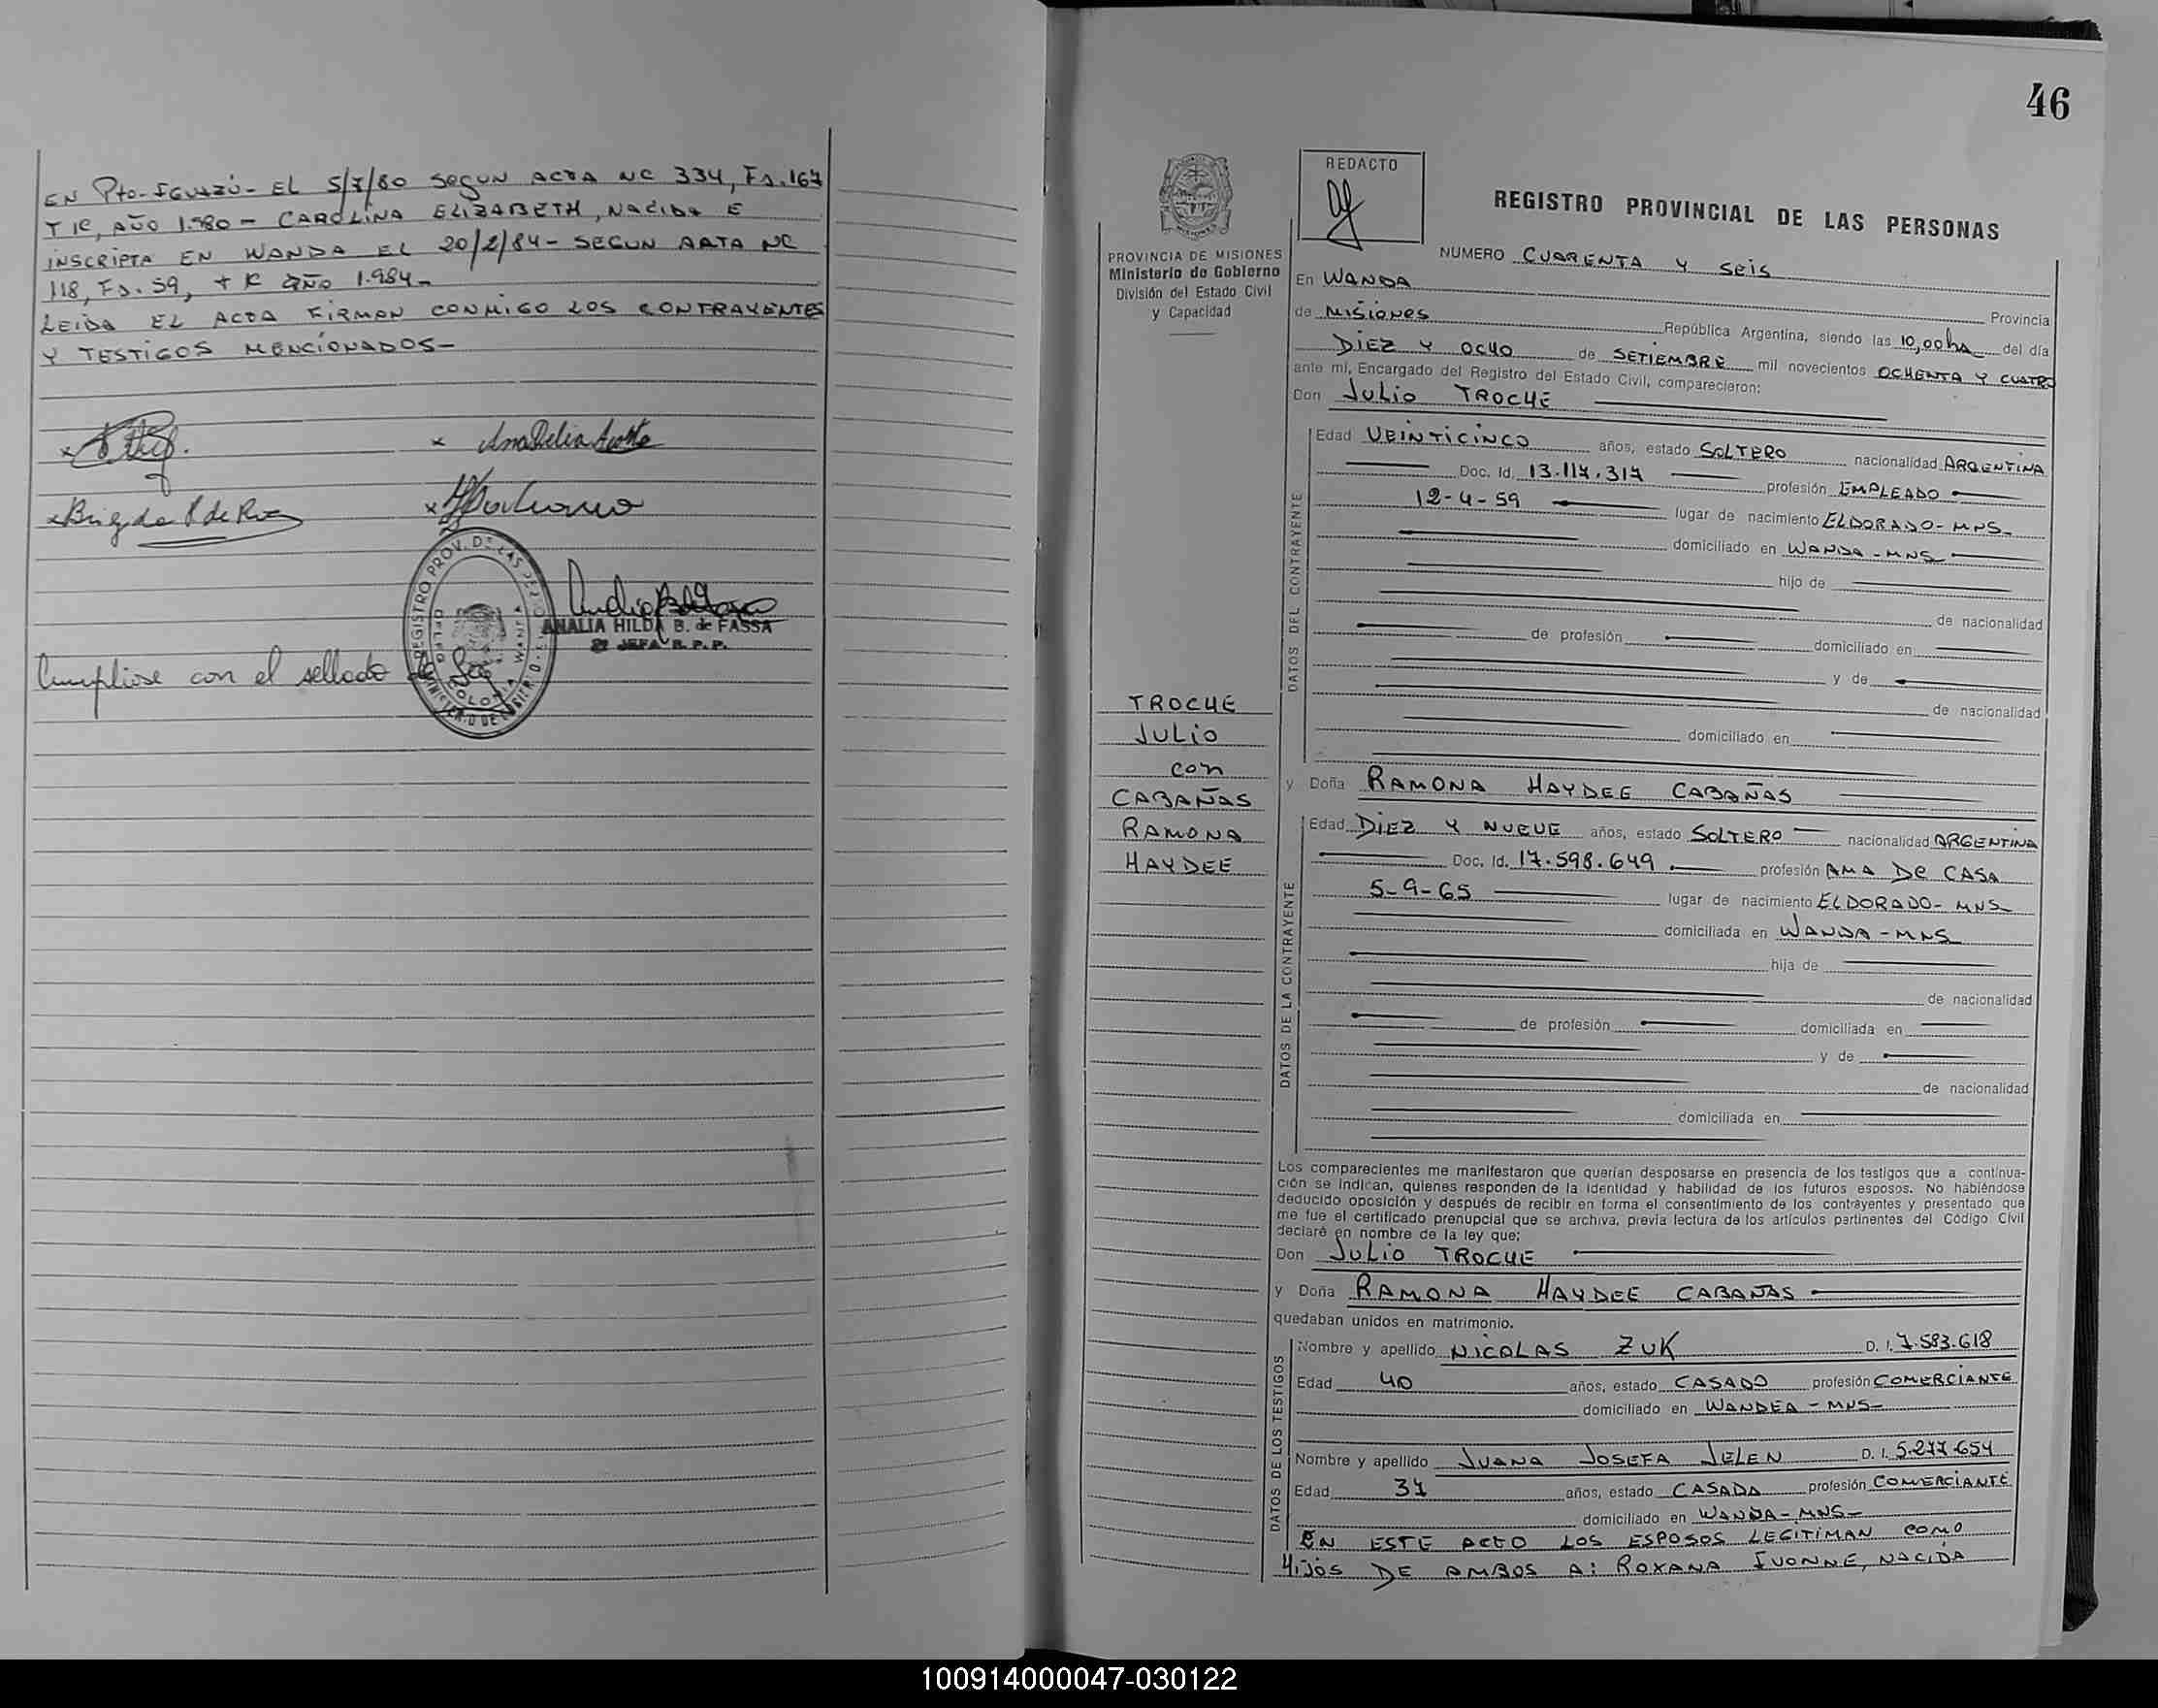 EN Pto-IGUAZÚ- EL 5/7/80 SEGUN ACTA NC 334, Fs. 167
T IC, AÑO 1.980 - CAROLINA ELIZABETH, NACIDA E
INSCRIPTA EN WANDA EL 20/2/84 - SEGUN AATA NC
118, Fs. 59, T IC AÑO 1.984-
LEIDA EL ACTA FIRMAN CONMIGO LOS CONTRAYENTES
Y TESTIGOS MENCIONADOS-
x
x Ana Delia
x Brigda P de
x
REGISTRO PROV. DE LAS
COLONIA WANDA
ANALIA HILDA B. de FASSA
JEFA R. P. P.
Cumpliose con el sellado de
46
REDACTO
REGISTRO PROVINCIAL DE LAS PERSONAS
PROVINCIA DE MISIONES
Ministerio de Gobierno
División del Estado Civil
y Capacidad
NUMERO CUARENTA Y SEIS
En WANDA Provincia
de MISIONES República Argentina, siendo las 10,00 hs del día
DIEZ Y OCHO de SETIEMBRE mil novecientos OCHENTA Y CUATRO
ante mí, Encargado del Registro del Estado Civil, comparecieron:
Don JULIO TROCHE
DATOS DEL CONTRAYENTE
Edad VEINTICINCO años, estado SOLTERO nacionalidad ARGENTINA
Doc. Id. 13.117.317 profesión EMPLEADO
12-4-59 lugar de nacimiento ELDORADO-MNS-
domiciliado en WANDA-MNS
hijo de
de nacionalidad
de profesión domiciliado en
y de
de nacionalidad
domiciliado en
TROCHE
JULIO
con
CABAÑAS
RAMONA
HAYDEE
y Doña RAMONA HAYDEE CABAÑAS
DATOS DE LA CONTRAYENTE
Edad DIEZ Y NUEVE años, estado SOLTERO nacionalidad ARGENTINA
Doc. Id. 17.598.649 profesión AMA DE CASA
5-9-65 lugar de nacimiento ELDORADO-MNS
domiciliada en WANDA-MNS
hija de
de nacionalidad
de profesión domiciliada en
y de
de nacionalidad
domiciliada en
Los comparecientes me manifestaron que querían desposarse en presencia de los testigos que a continua-
ción se indican, quienes responden de la identidad y habilidad de los futuros esposos. No habiéndose
deducido oposición y después de recibir en forma el consentimiento de los contrayentes y presentado que
me fue el certificado prenupcial que se archiva, previa lectura de los artículos pertinentes del Código Civil
declaré en nombre de la ley que:
Don JULIO TROCHE
y Doña RAMONA HAYDEE CABAÑAS
quedaban unidos en matrimonio.
DATOS DE LOS TESTIGOS
Nombre y apellido NICOLAS ZUK D. I. 7.583.618
Edad 40 años, estado CASADO profesión COMERCIANTE
domiciliado en WANDEA-MNS-
Nombre y apellido JUANA JOSEFA JELEN D. I. 5.277.654
Edad 37 años, estado CASADA profesión COMERCIANTE
domiciliado en WANDA-MNS-
EN ESTE ACTO LOS ESPOSOS LEGITIMAN COMO
HIJOS DE AMBOS A: ROXANA IVONNE, NACIDA
100914000047-030122